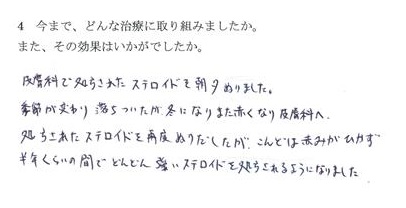 4 今まで、どんな治療に取り組みましたか。
また、その効果はいかがでしたか。
皮膚科で処ちされたステロイドを朝夕ぬりました。
季節が変わり落ちついたが、冬になりまた赤くなり皮膚科へ。
処ちされたステロイドを再度ぬりだしたが、こんどは赤みがひかず
半年くらいの間でどんどん強いステロイドを処ちされるようになりました